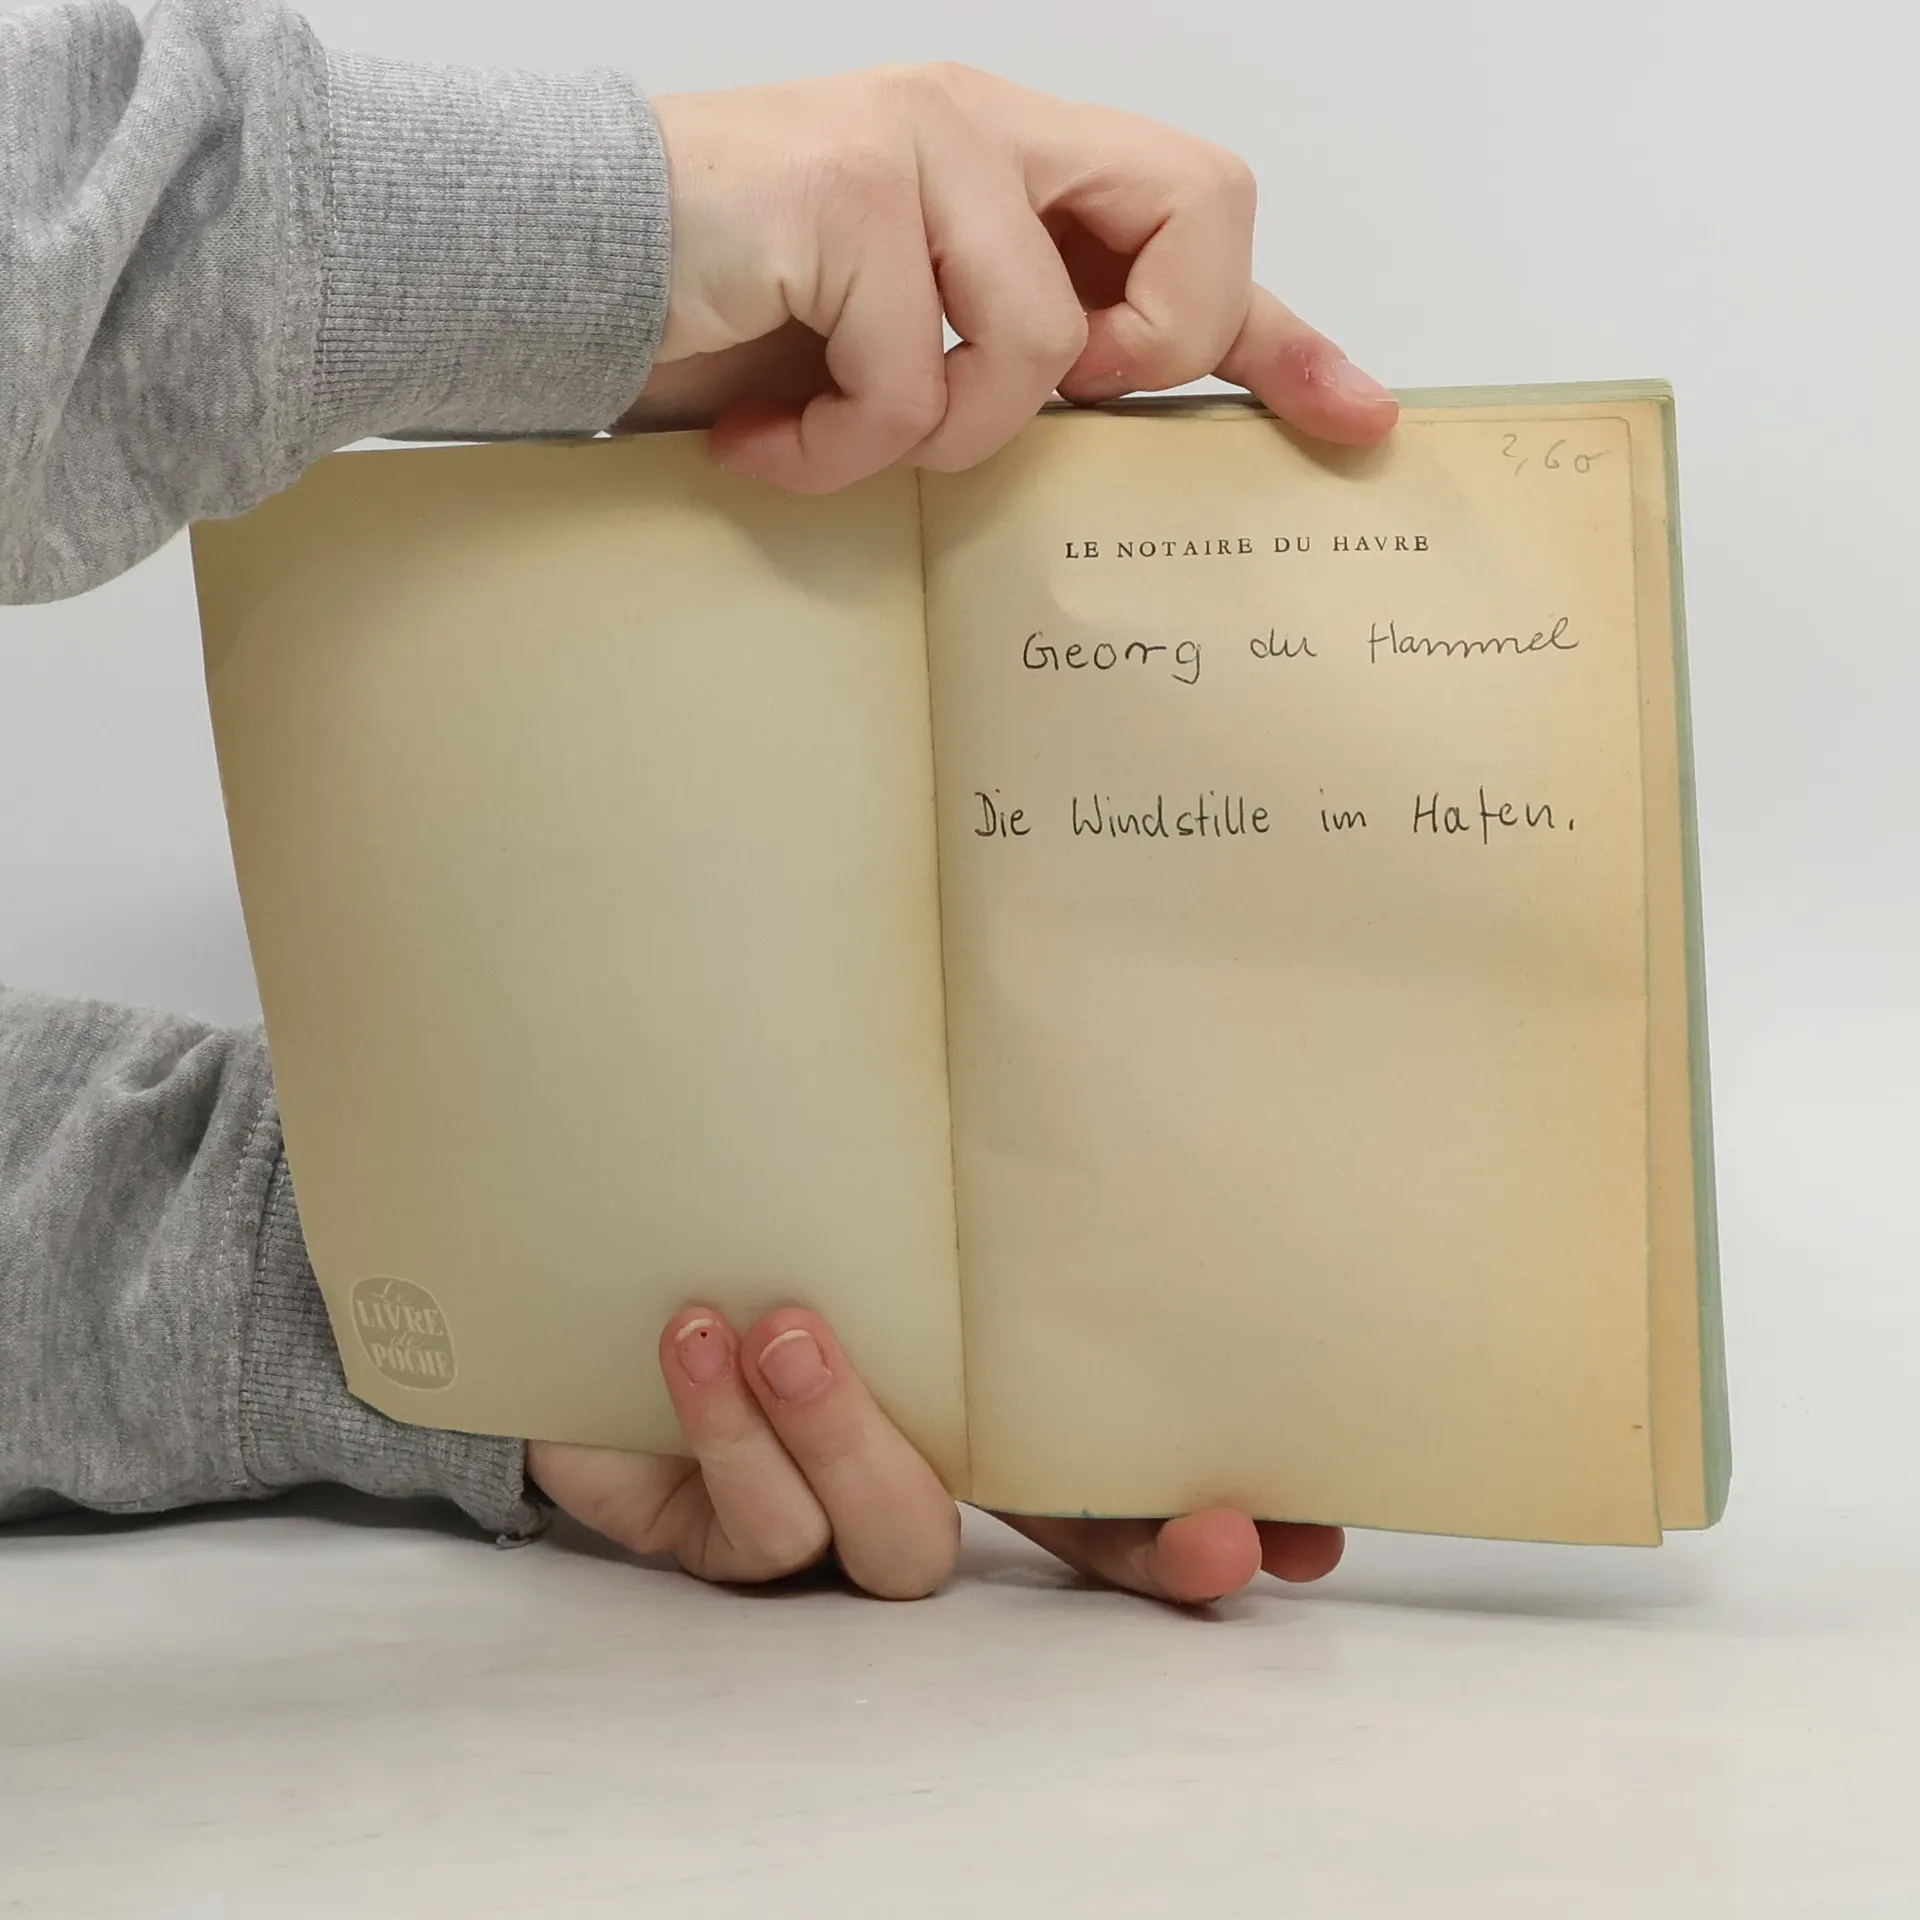 2,60
LE NOTAIRE DU HAVRE
Georg du Hammel
Die Windstille im Hafen.
Le
LIVRE
de
POCHE